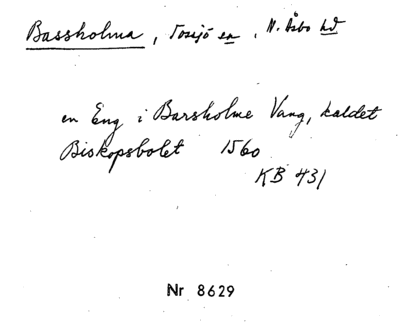 Bassholma, Tosjö en, N. Åsbo hd
en Eng i Barsholme Vang, kaldet
Biskopsbolet 1560
KB 431
Nr 8629